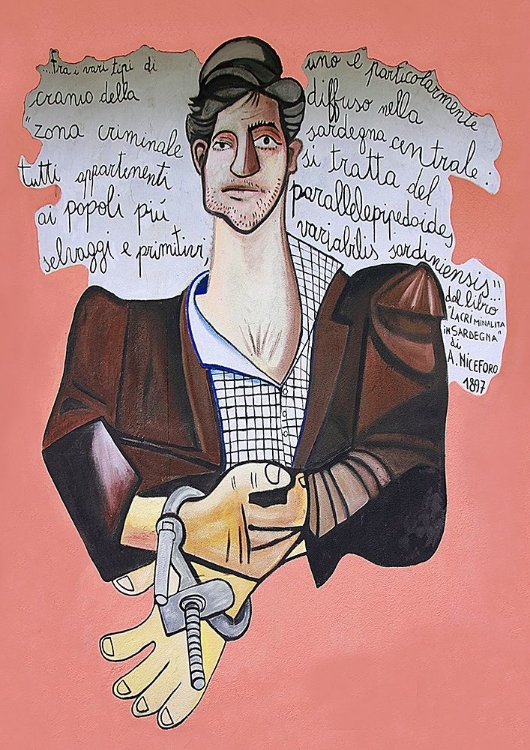 ...tra i vari tipi di
cranio della
"zona criminale
tutti appartenenti
ai popoli più
selvaggi e primitivi,
uno e particolarmente
diffuso nella
sardegna centrale:
si tratta del
parallelepipedoides
variabilis sardiniensis"...
dal libro
"LA CRIMINALITA
IN SARDEGNA"
di
A. NICEFORO
1897